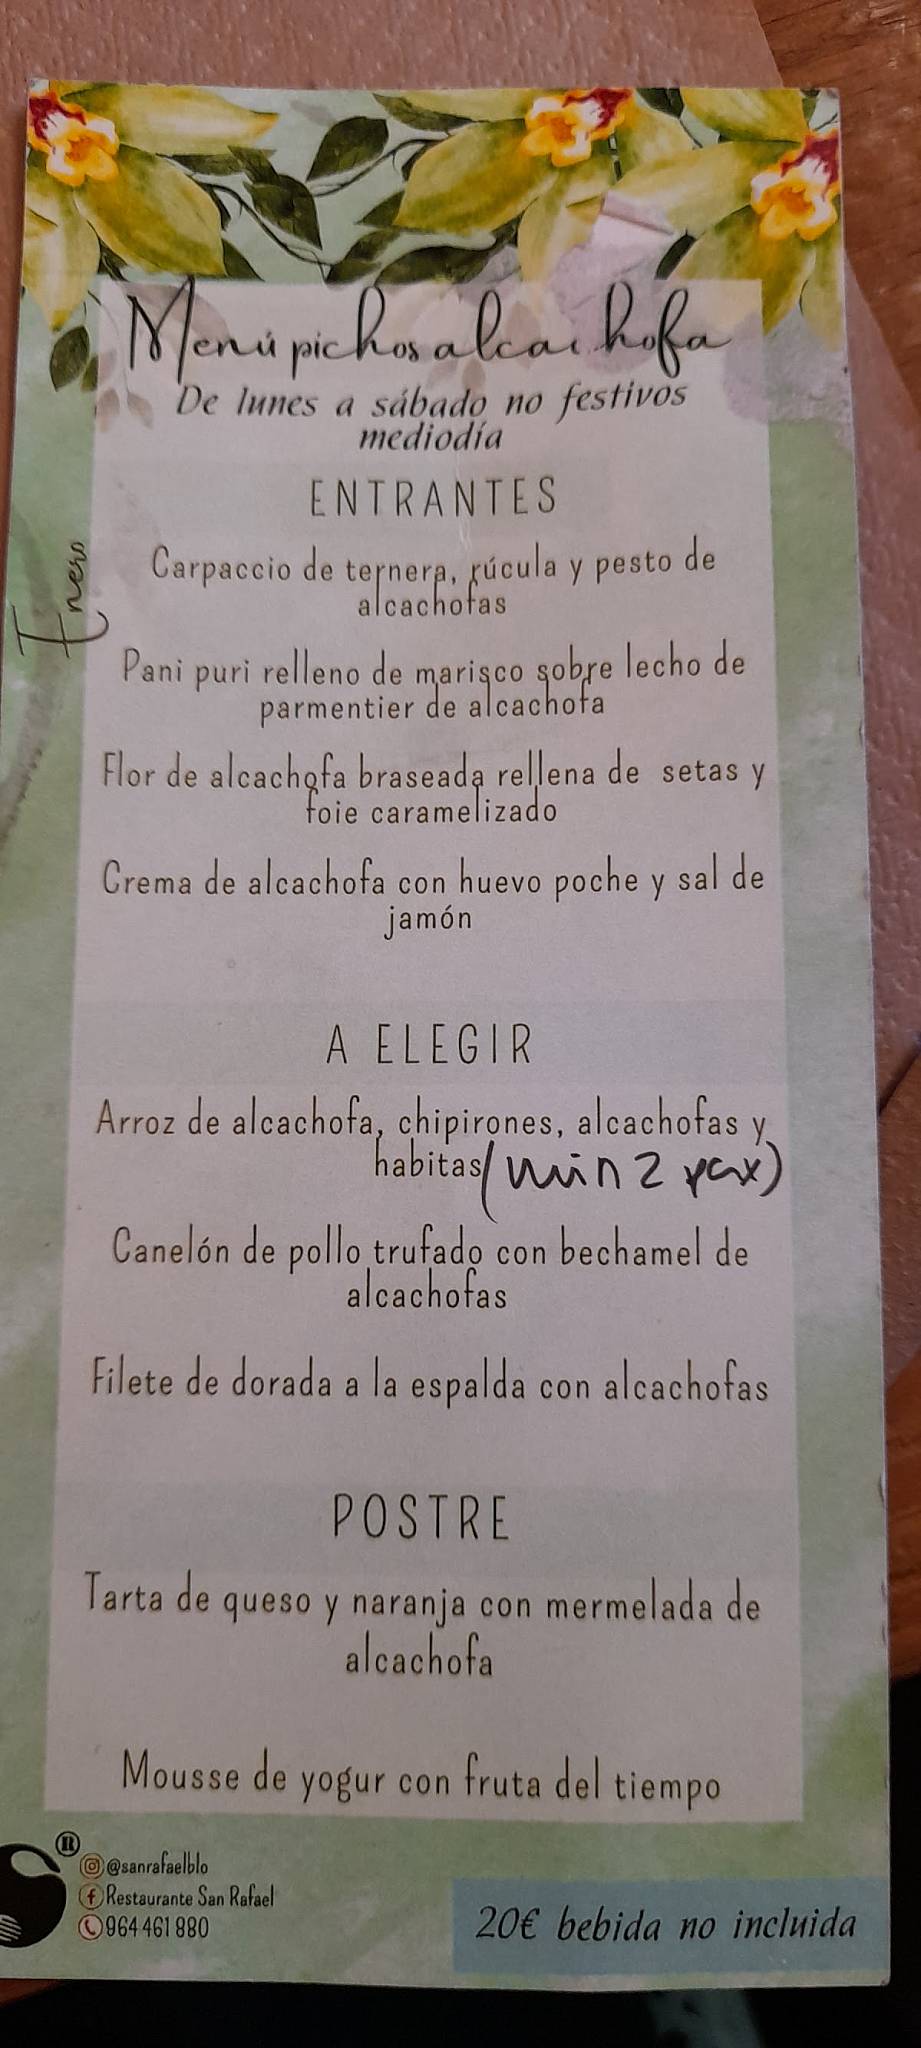 Menú pichos alcachofa
De lunes a sábado no festivos
mediodía
ENTRANTES
Enero
Carpaccio de ternera, rúcula y pesto de
alcachofas
Pani puri relleno de marisco sobre lecho de
parmentier de alcachofa
Flor de alcachofa braseada rellena de setas y
foie caramelizado
Crema de alcachofa con huevo poche y sal de
jamón
A ELEGIR
Arroz de alcachofa, chipirones, alcachofas y
habitas (min 2 pax)
Canelón de pollo trufado con bechamel de
alcachofas
Filete de dorada a la espalda con alcachofas
POSTRE
Tarta de queso y naranja con mermelada de
alcachofa
Mousse de yogur con fruta del tiempo
®
@sanrafaelblo
Restaurante San Rafael
964 461 880
20€ bebida no incluida